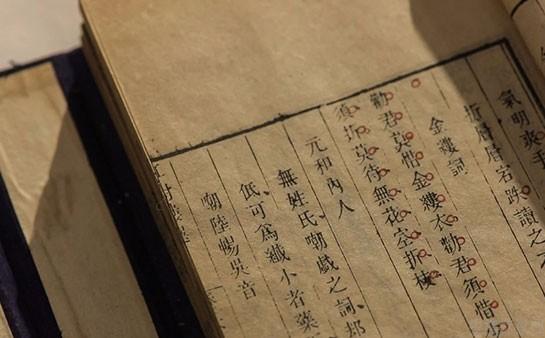 氣明爽手
折層層宕跌讀之不
金縷詞
勸君莫惜金縷衣勸君須惜少
須折莫待無花空折枝
元和內人
無姓氏嘲戲之詞
低可爲纖小者藥
嘲陸暢吳音